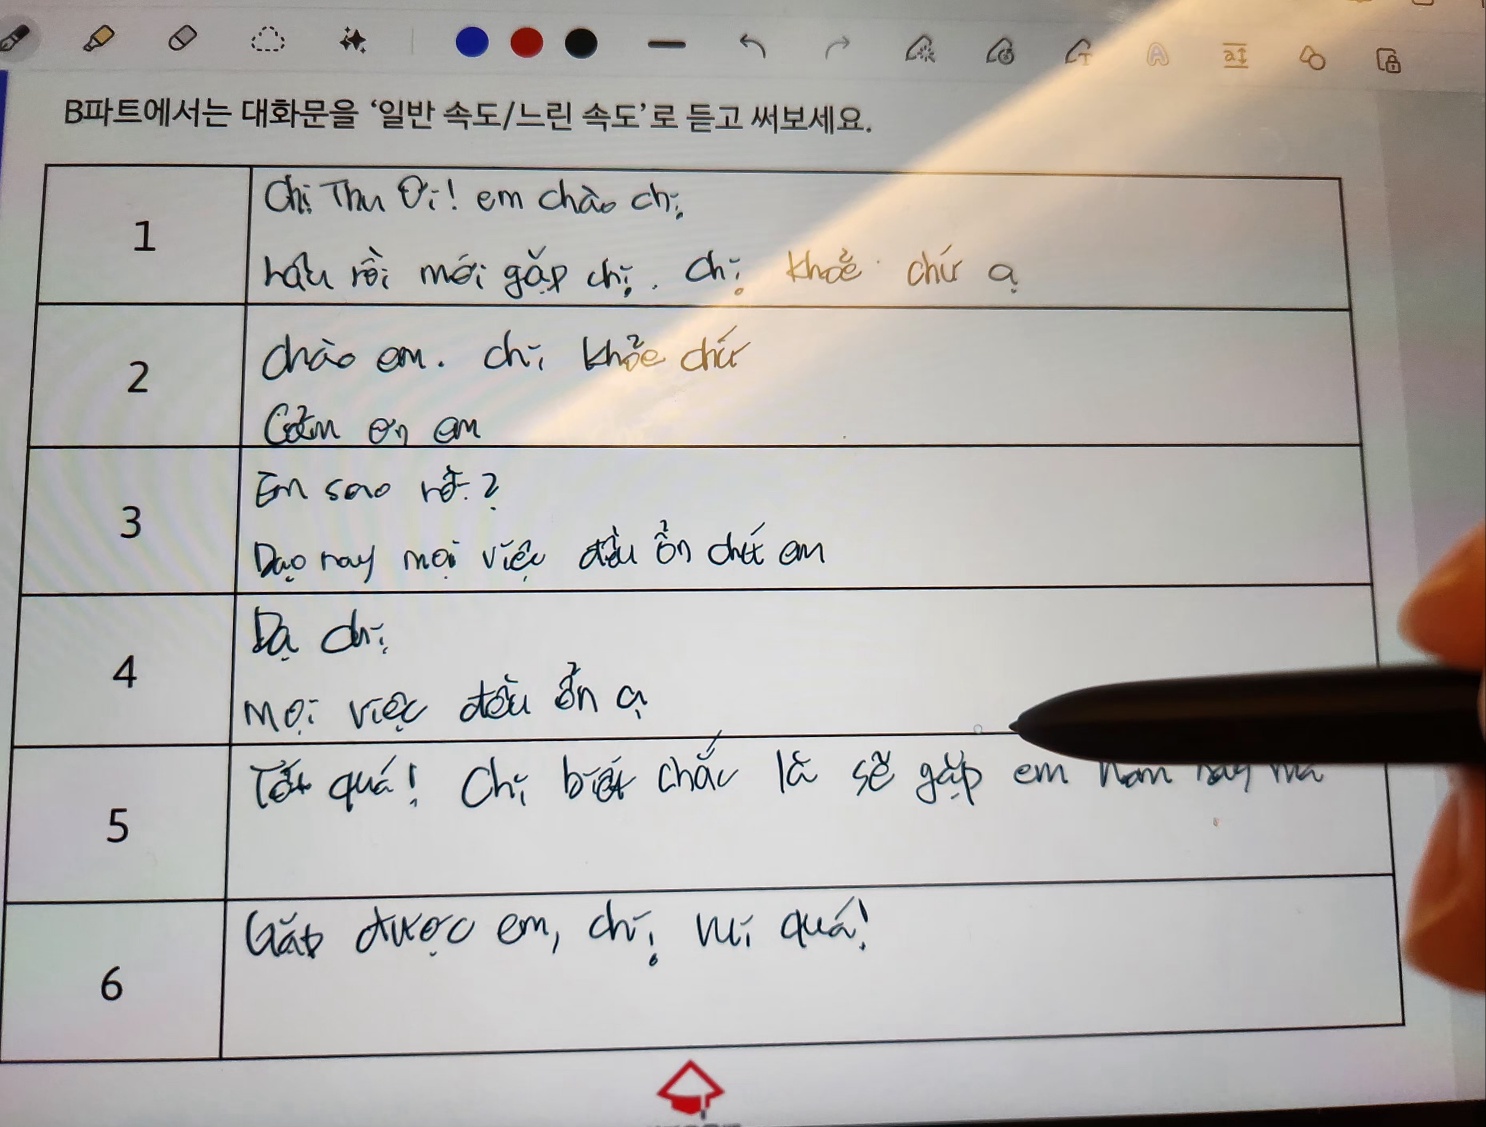 B파트에서는 대화문을 ‘일반 속도/느린 속도’로 듣고 써보세요.
1
Chị Thu Ơi! em chào chị
rồi mới gặp chị. chị khoẻ chứ ạ
2
chào em. chị khoẻ chứ
Cảm ơn em
3
Em sao rồi?
Dạo nay mọi việc đều ổn chứ em
4
Dạ chị
mọi việc đều ổn ạ
5
Tốt quá! Chị biết chắc là sẽ gặp em năm nay mà
6
Gặp được em, chị vui quá!